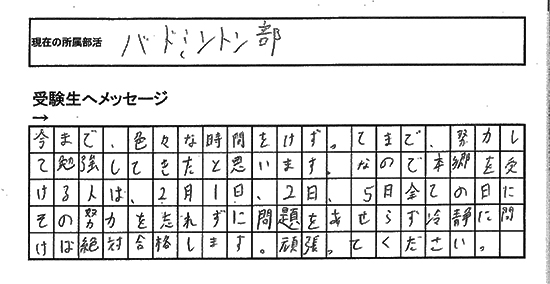 現在の所属部活
バドミントン部
受験生へメッセージ
→
今まで、色々な時間をけずってまで、努力し
て勉強してきたと思います。なので本郷を受
ける人は、2月1日、2日、5日全ての日に
その努力を忘れずに問題をあせらず冷静に問
けば絶対合格します。頑張ってください。